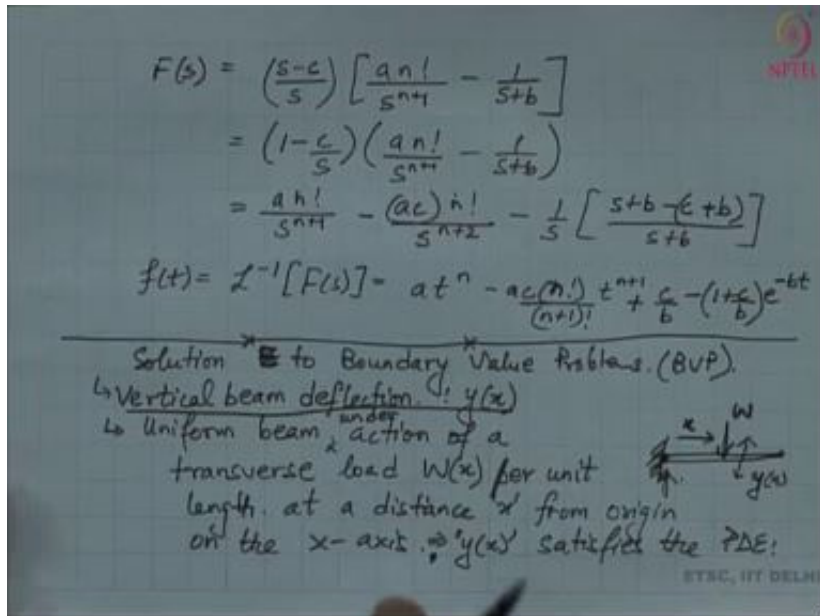 F(s) = (s-c/s) [an!/s^{n+1} - 1/s+b]
NPTEL
= (1-c/s) (an!/s^{n+1} - 1/s+b)
= an!/s^{n+1} - (ac) n!/s^{n+2} - 1/s [s+b-(c+b)/s+b]
f(t) = L^{-1}[F(s)] = at^n - ac(n!)/(n+1)! t^{n+1} + c/b - (1+c/b)e^{-bt}
Solution to Boundary Value Problems. (BVP).
↳ Vertical beam deflection : y(x)
↳ Uniform beam under action of a
transverse load W(x) per unit
length. at a distance 'x' from origin
on the x-axis ⇒ 'y(x)' satisfies the PDE:
x
W
y(x)
ETSC, IIT DELHI